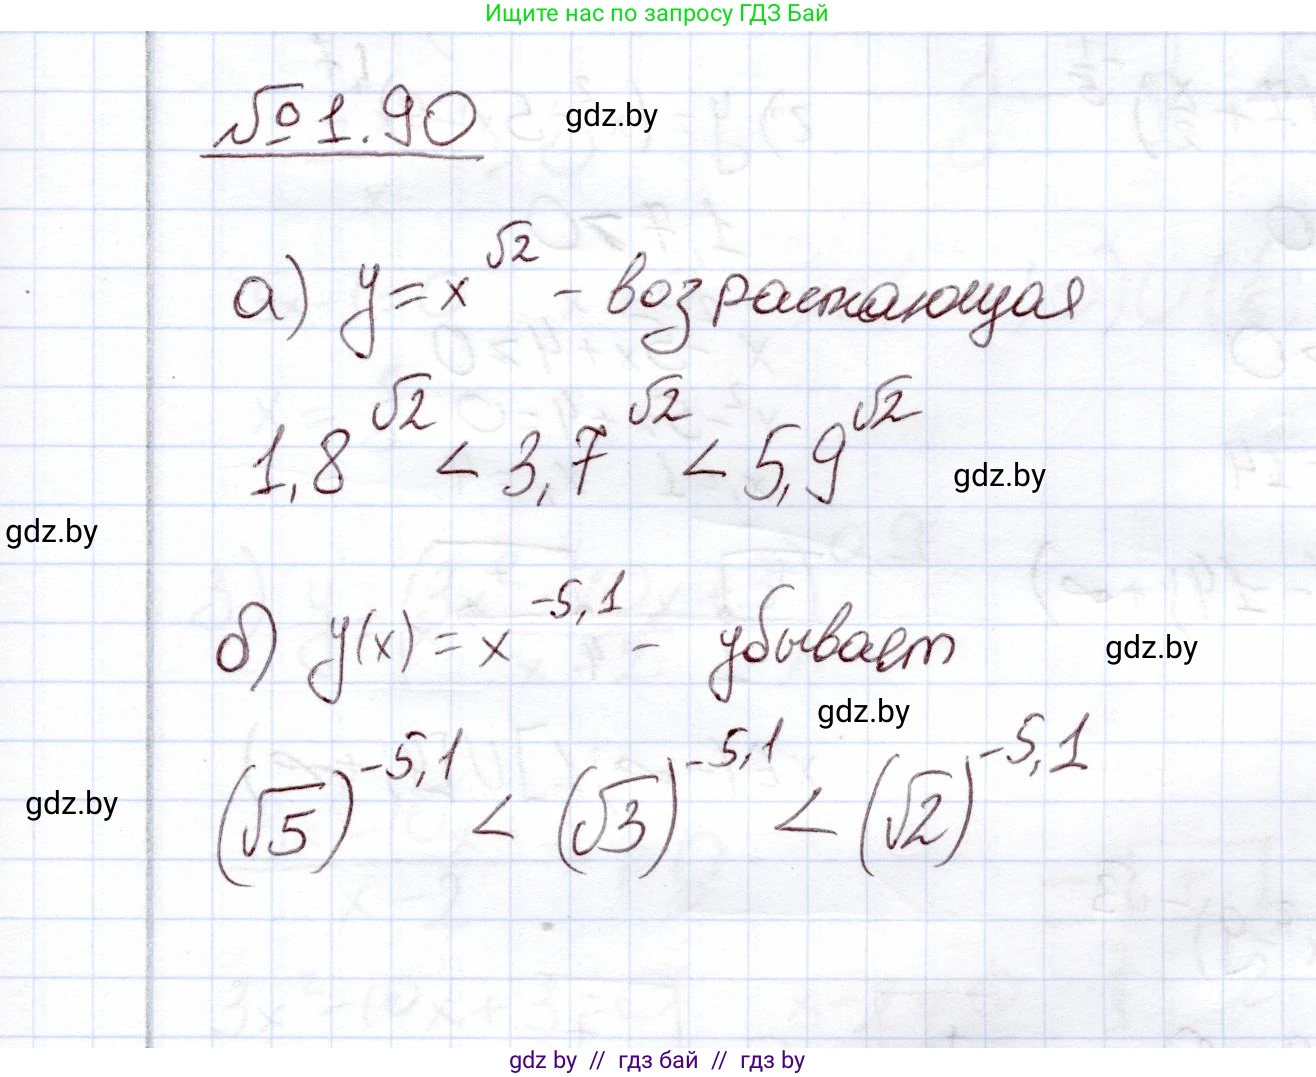 Ищите нас по запросу ГДЗ Бай
№ 1.90
gdz.by
а) y = x^√2 – возрастающая
1,8^√2 < 3,7^√2 < 5,9^√2
gdz.by
gdz.by
б) y(x) = x^-5,1 – убывает
gdz.by
gdz.by
(√5)^-5,1 < (√3)^-5,1 < (√2)^-5,1
gdz.by
gdz by // гдз бай // гдз by